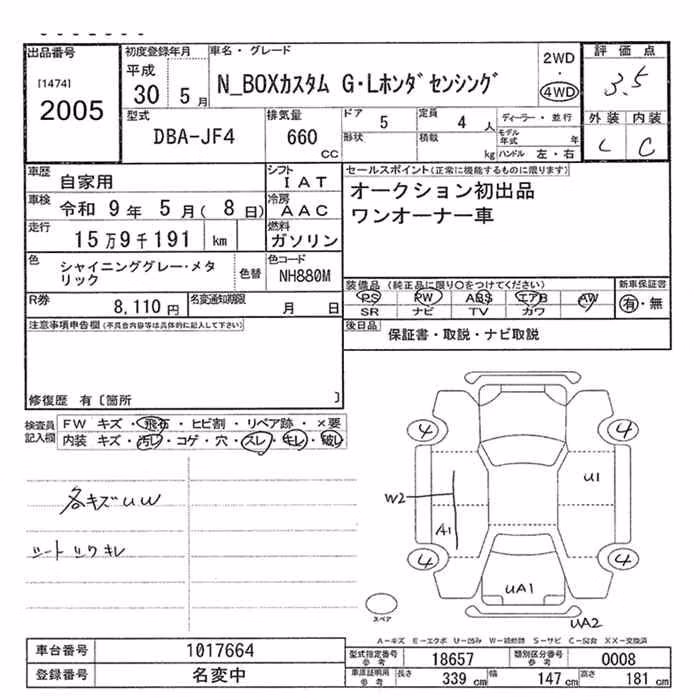 出品番号
[1474]
2005
初度登録年月
平成
30 5 月
車名・グレード
N_BOXカスタム G・Lホンダセンシング
2WD
・
4WD
評価点
3.5
外装 内装
C
型式
DBA-JF4
排気量
660
CC
ドア
5
定員
4 人
形状
積載
kg
ディーラー・並行
モデル年式 年
ハンドル 左・右
車歴
自家用
シフト
IAT
車検
令和 9年 5月( 8日)
冷房
AAC
走行
15万9千191 km
燃料
ガソリン
色
シャイニンググレー・メタリック
色替
色コード
NH880M
R券
8,110 円
名変通知期限
月 日
セールスポイント(正常に機能するものに限ります)
オークション初出品
ワンオーナー車
装備品(純正品に限り○をつけてください)
PS PW ABS エアB AW
SR ナビ TV カワ
新車保証書
有・無
後日品
保証書・取説・ナビ取説
注意事項申告欄(不具合内容等は具体的に記入して下さい)
修復歴 有〔箇所 〕
検査員記入欄
FW キズ・飛石・ヒビ割・リペア跡・×要
内装 キズ・汚レ・コゲ・穴・スレ・キレ・破レ
各キズUW
4
4
U1
W2
A1
4
4
UA1
スペア
UA2
A-キズ E-エクボ U-凹み W-補修跡 S-サビ C-腐食 XX-交換済
車台番号
1017664
登録番号
名変中
型式指定番号
参考
18657
類別区分番号
参考
0008
車庫証明用
参考
長さ
339 cm
幅
147 cm
高さ
181 cm